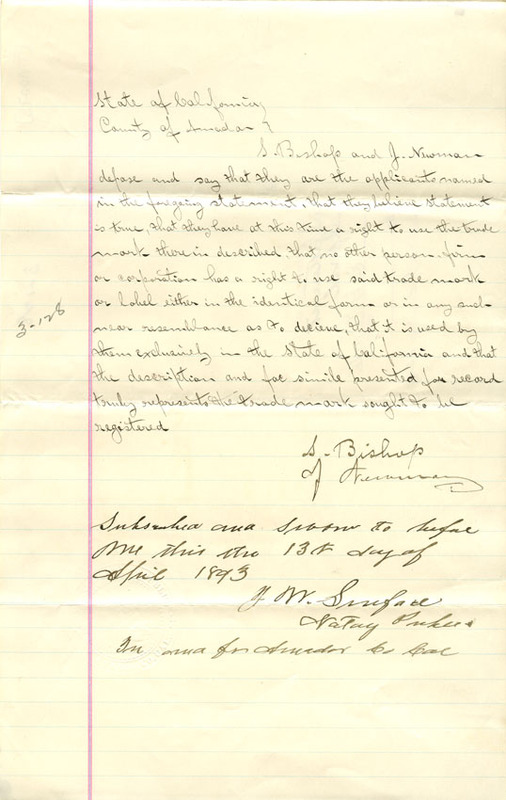 State of California
County of Amador }
S. Bishop and J. Newman
depose and say that they are the applicants named
in the foregoing statement, that they believe statement
is true that they have at this time a right to use the trade
mark therein described that no other person, firm
or corporation has a right to use said trade mark
or label either in the identical form or in any such
near resemblance as to decieve, that it is used by
them exclusively in the State of California and that
the description and fac simile presented for record
truly represents the trade mark sought to be
registered
3-128
S. Bishop
J Newman
Subscribed and sworn to before
me this the 13th day of
April 1893
J. W. Surface
Notary Public
In and for Amador Co Cal